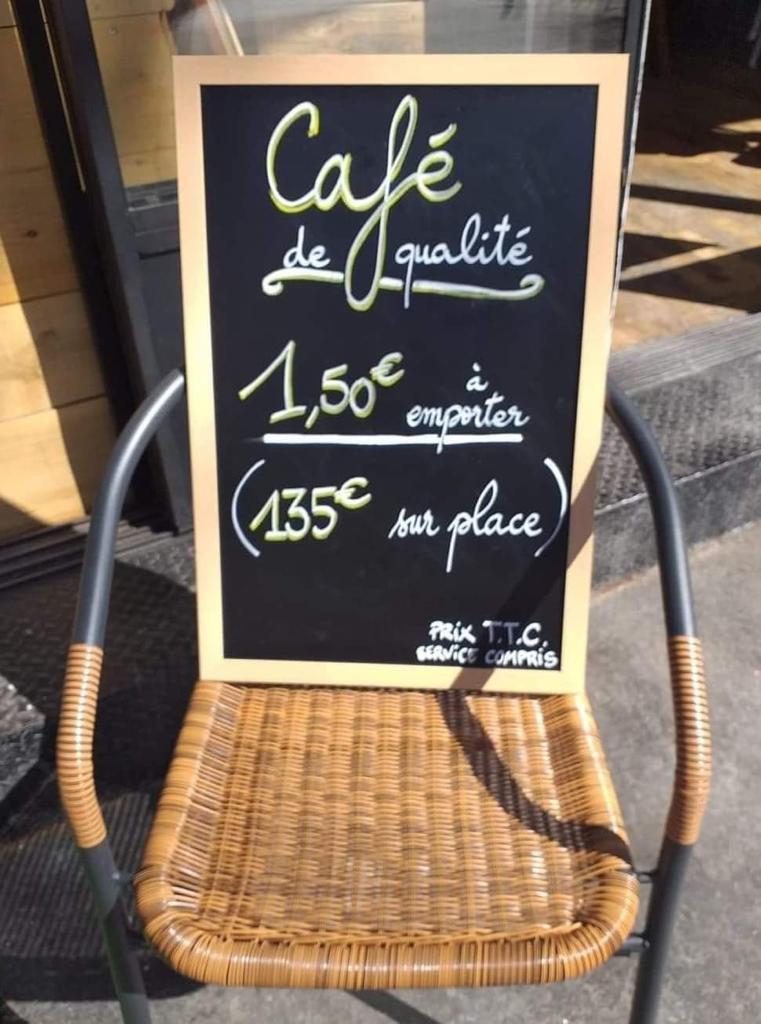 Café
de qualité
1,50€ à emporter
(135€ sur place)
PRIX T.T.C.
SERVICE COMPRIS